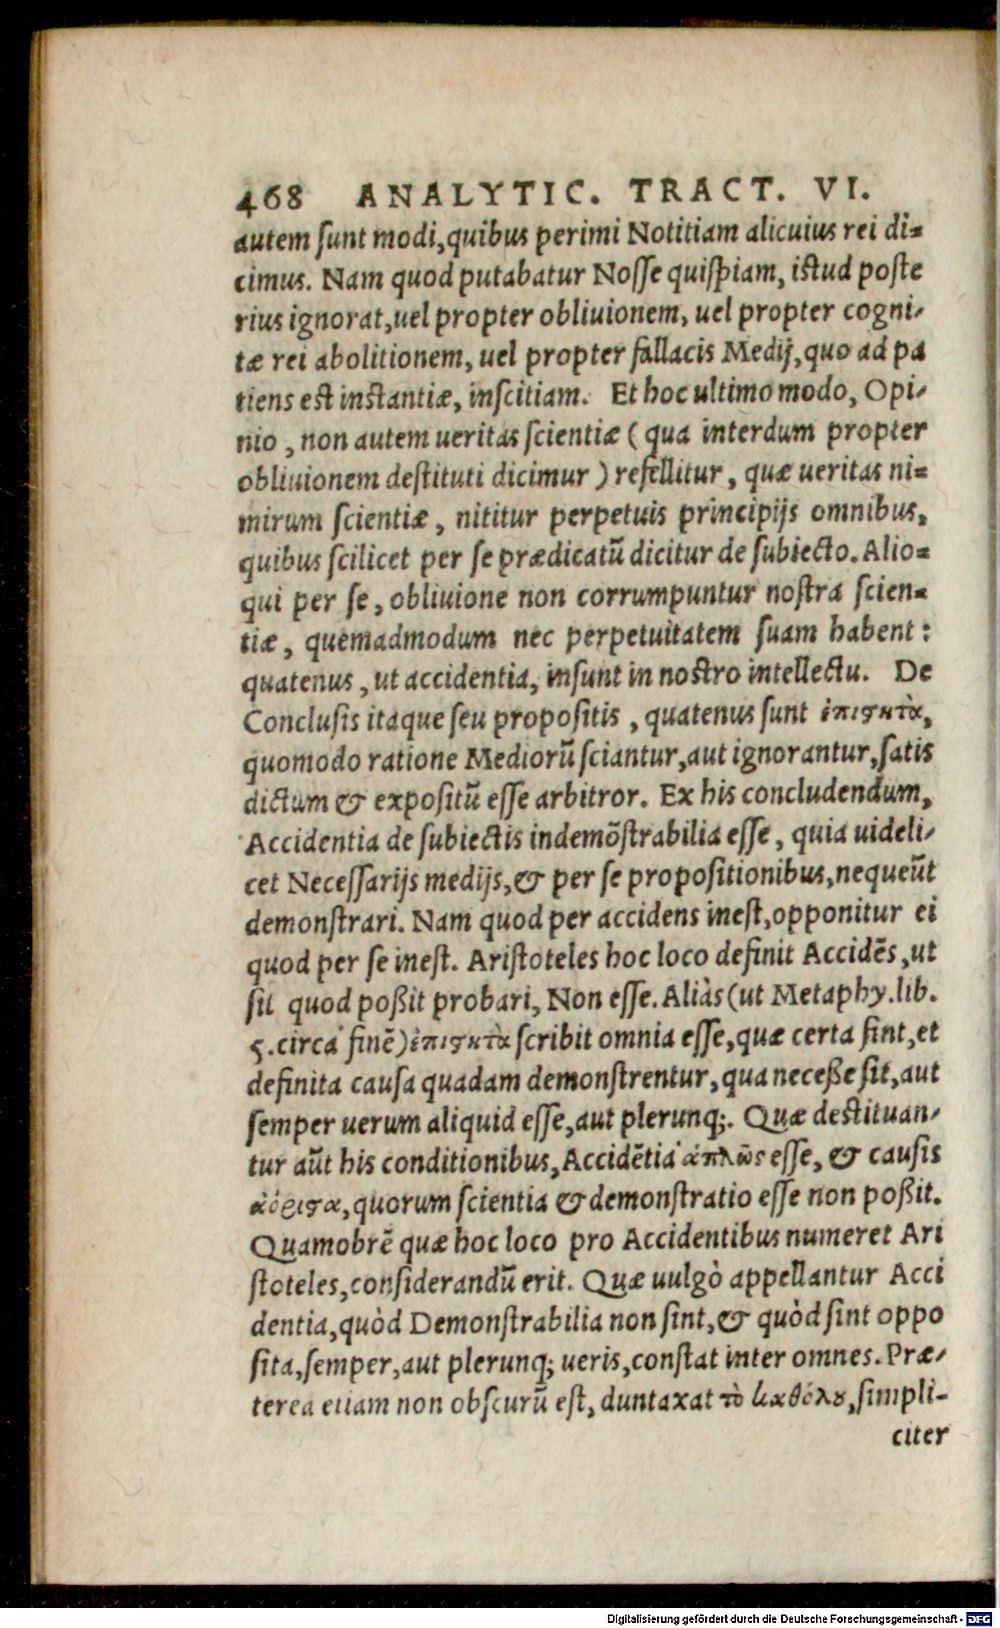 468 ANALYTIC. TRACT. VI.
autem sunt modi, quibus perimi Notitiam alicuius rei di=
cimus. Nam quod putabatur Nosse quispiam, istud poste
rius ignorat, uel propter obliuionem, uel propter cogni,
tæ rei abolitionem, uel propter fallacis Medij, quo ad pa
tiens est instantiæ, inscitiam. Et hoc ultimo modo, Opi,
nio, non autem ueritas scientiæ ( qua interdum propter
obliuionem destituti dicimur ) refellitur, quæ ueritas ni=
mirum scientiæ, nititur perpetuis principijs omnibus,
quibus scilicet per se prædicatũ dicitur de subiecto. Alio=
qui per se, obliuione non corrumpuntur nostra scien=
tiæ, quemadmodum nec perpetuitatem suam habent:
quatenus, ut accidentia, insunt in nostro intellectu. De
Conclusis itaque seu propositis, quatenus sunt ἐπιϛητὰ,
quomodo ratione Mediorũ sciantur, aut ignorantur, satis
dictum & expositũ esse arbitror. Ex his concludendum,
Accidentia de subiectis indemõstrabilia esse, quia uideli,
cet Necessarijs medijs, & per se propositionibus, nequeũt
demonstrari. Nam quod per accidens inest, opponitur ei
quod per se inest. Aristoteles hoc loco definit Accidẽs, ut
sit quod poßit probari, Non esse. Aliàs (ut Metaphy. lib.
5. circa finẽ) ἐπιϛητὰ scribit omnia esse, quæ certa sint, et
definita causa quadam demonstrentur, qua neceße sit, aut
semper uerum aliquid esse, aut plerunq;. Quæ destituan,
tur aũt his conditionibus, Accidẽtia ἁπλῶς esse, & causis
ἀόριϛα, quorum scientia & demonstratio esse non poßit.
Quamobrẽ quæ hoc loco pro Accidentibus numeret Ari
stoteles, considerandũ erit. Quæ uulgò appellantur Acci
dentia, quòd Demonstrabilia non sint, & quòd sint oppo
sita, semper, aut plerunq; ueris, constat inter omnes. Præ,
terea etiam non obscurũ est, duntaxat τὸ καθόλȣ, simpli-
citer
Digitalisierung gefördert durch die Deutsche Forschungsgemeinschaft - DFG